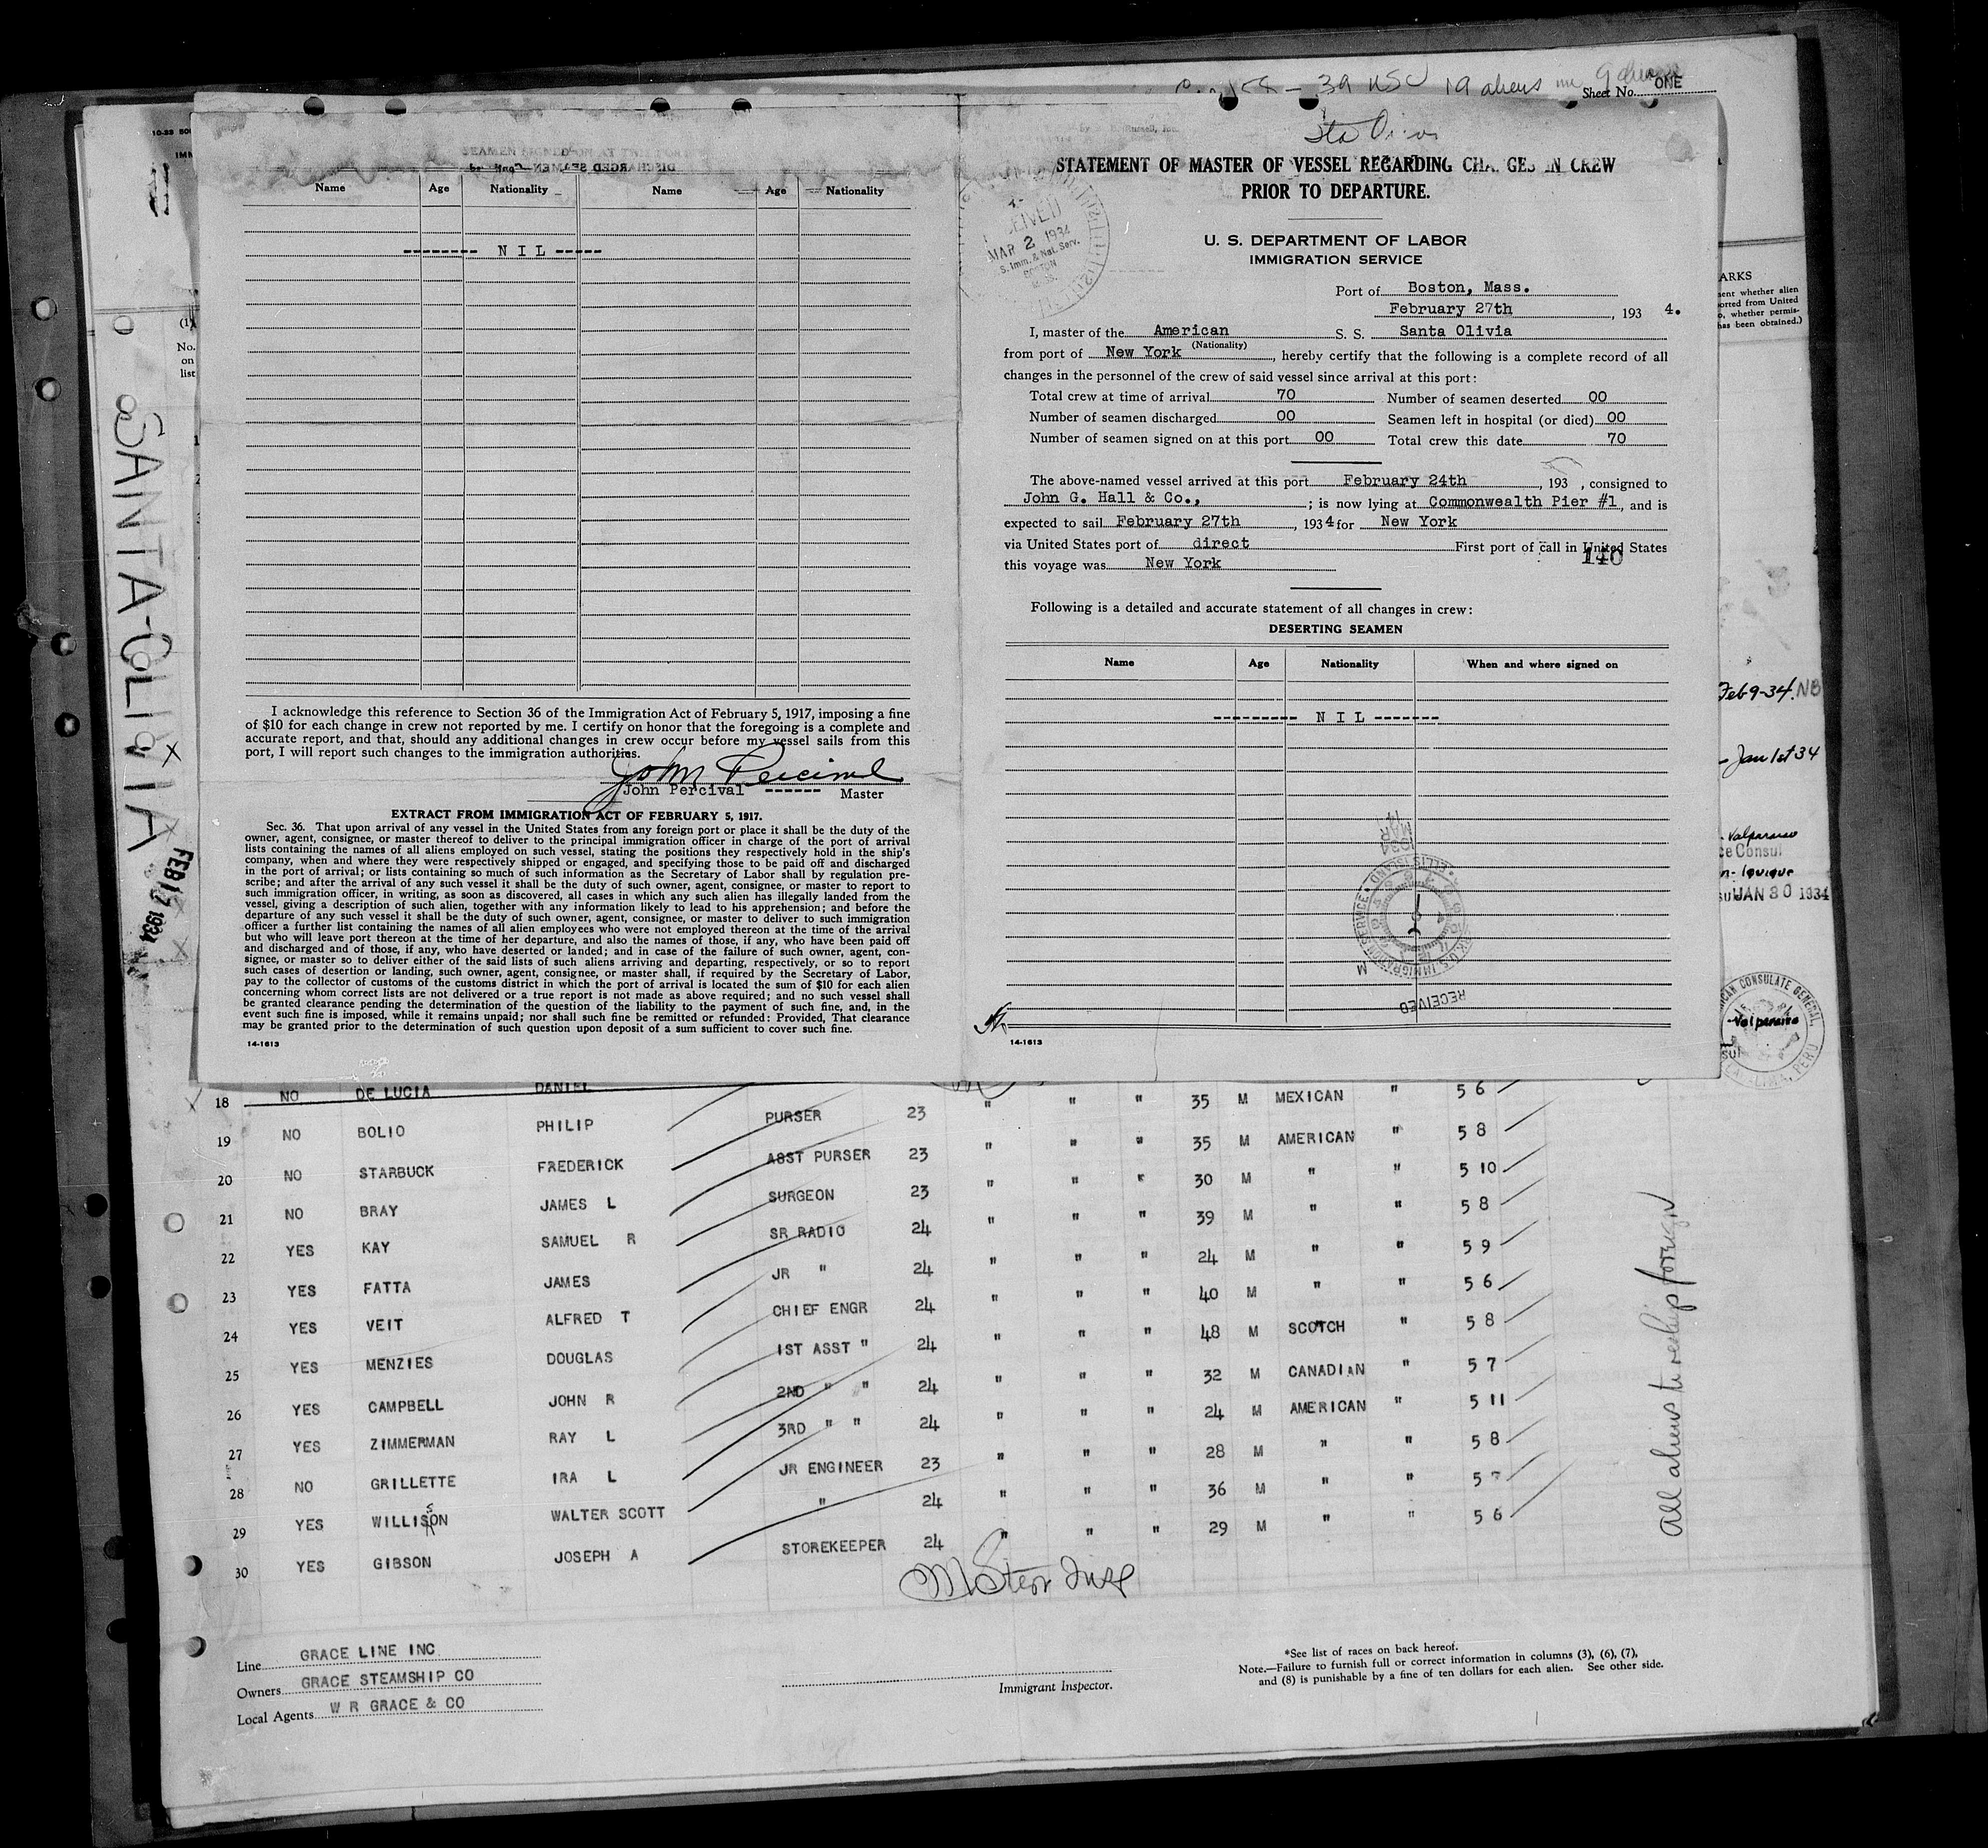 39 USC 19 aliens
Sheet No. ONE
10-33
SEAMEN SIGNED ON AT THIS PORT
Name Age Nationality Name Age Nationality
-------- N I L -----
I acknowledge this reference to Section 36 of the Immigration Act of February 5, 1917, imposing a fine
of $10 for each change in crew not reported by me. I certify on honor that the foregoing is a complete and
accurate report, and that, should any additional changes in crew occur before my vessel sails from this
port, I will report such changes to the immigration authorities.
John Percival
John Percival ------ Master
EXTRACT FROM IMMIGRATION ACT OF FEBRUARY 5, 1917.
Sec. 36. That upon arrival of any vessel in the United States from any foreign port or place it shall be the duty of the
owner, agent, consignee, or master thereof to deliver to the principal immigration officer in charge of the port of arrival
lists containing the names of all aliens employed on such vessel, stating the positions they respectively hold in the ship's
company, when and where they were respectively shipped or engaged, and specifying those to be paid off and discharged
in the port of arrival; or lists containing so much of such information as the Secretary of Labor shall by regulation pre-
scribe; and after the arrival of any such vessel it shall be the duty of such owner, agent, consignee, or master to report to
such immigration officer, in writing, as soon as discovered, all cases in which any such alien has illegally landed from the
vessel, giving a description of such alien, together with any information likely to lead to his apprehension; and before the
departure of any such vessel it shall be the duty of such owner, agent, consignee, or master to deliver to such immigration
officer a further list containing the names of all alien employees who were not employed thereon at the time of the arrival
but who will leave port thereon at the time of her departure, and also the names of those, if any, who have been paid off
and discharged and of those, if any, who have deserted or landed; and in case of the failure of such owner, agent, con-
signee, or master so to deliver either of the said lists of such aliens arriving and departing, respectively, or so to report
such cases of desertion or landing, such owner, agent, consignee, or master shall, if required by the Secretary of Labor,
pay to the collector of customs of the customs district in which the port of arrival is located the sum of $10 for each alien
concerning whom correct lists are not delivered or a true report is not made as above required; and no such vessel shall
be granted clearance pending the determination of the question of the liability to the payment of such fine, and, in the
event such fine is imposed, while it remains unpaid; nor shall such fine be remitted or refunded: Provided, That clearance
may be granted prior to the determination of such question upon deposit of a sum sufficient to cover such fine.
14-1613
STATEMENT OF MASTER OF VESSEL REGARDING CHANGES IN CREW
PRIOR TO DEPARTURE.
MAR 2 1934
S. Imm. & Nat. Serv.
BOSTON
U. S. DEPARTMENT OF LABOR
IMMIGRATION SERVICE
Port of Boston, Mass.
February 27th, 193 4.
I, master of the American S. S. Santa Olivia
(Nationality)
from port of New York, hereby certify that the following is a complete record of all
changes in the personnel of the crew of said vessel since arrival at this port:
Total crew at time of arrival 70 Number of seamen deserted 00
Number of seamen discharged 00 Seamen left in hospital (or died) 00
Number of seamen signed on at this port 00 Total crew this date 70
The above-named vessel arrived at this port February 24th, 193 , consigned to
John G. Hall & Co., ; is now lying at Commonwealth Pier #1, and is
expected to sail February 27th, 1934 for New York
via United States port of direct First port of call in United States
this voyage was New York
140
Following is a detailed and accurate statement of all changes in crew:
DESERTING SEAMEN
Name Age Nationality When and where signed on
--------- N I L -------
MAR 14 1934
RECEIVED
14-1613
SANTA-OLIVIA
FEB 17 1934
(1)
No.
on
list
ARKS
Feb 9-34. NB
Jan 1st 34
Valparaiso
ce Consul
Iquique
JAN 30 1934
CAN CONSULATE GENERAL
Valparaiso
LIMA, PERU
18 NO DE LUCIA DANIEL
19 NO BOLIO PHILIP PURSER 23 " " " 35 M MEXICAN " 5 6
20 NO STARBUCK FREDERICK ASST PURSER 23 " " " 35 M AMERICAN " 5 8
21 NO BRAY JAMES L SURGEON 23 " " " 30 M " " 5 10
22 YES KAY SAMUEL R SR RADIO 24 " " " 39 M " " 5 8
23 YES FATTA JAMES JR " 24 " " " 24 M " " 5 9
24 YES VEIT ALFRED T CHIEF ENGR 24 " " " 40 M " " 5 6
25 YES MENZIES DOUGLAS 1ST ASST " 24 " " " 48 M SCOTCH " 5 8
26 YES CAMPBELL JOHN R 2ND " " 24 " " " 32 M CANADIAN " 5 7
27 YES ZIMMERMAN RAY L 3RD " " 24 " " " 24 M AMERICAN " 5 11
28 NO GRILLETTE IRA L JR ENGINEER 23 " " " 28 M " " 5 8
29 YES WILLISON WALTER SCOTT " 24 " " " 36 M " " 5 7
30 YES GIBSON JOSEPH A STOREKEEPER 24 " " " 29 M " " 5 6
All aliens to reship foreign
Line GRACE LINE INC
Owners GRACE STEAMSHIP CO
Local Agents W R GRACE & CO
Immigrant Inspector.
*See list of races on back hereof.
Note.—Failure to furnish full or correct information in columns (3), (6), (7),
and (8) is punishable by a fine of ten dollars for each alien. See other side.